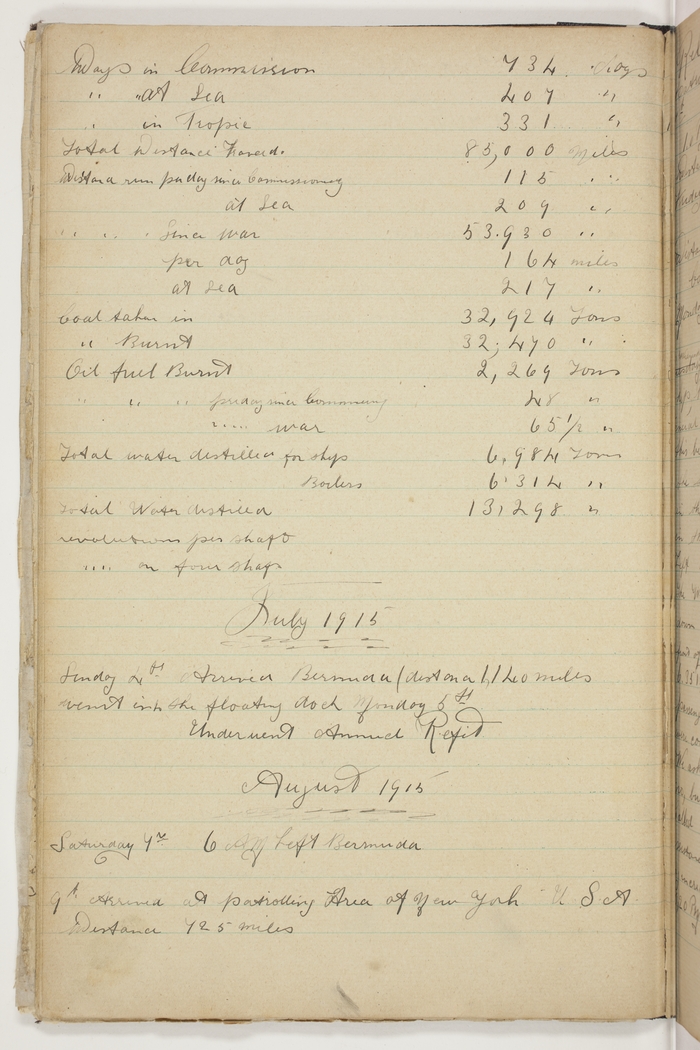 Days in Commission 734 days
" " at Sea 407 "
" in Tropic 331 "
Total Distance Traved. 85,000 Miles
Distand run per day since Commissioning 115 "
at Sea 209 "
" " " Since war 53.930 "
per day 164 miles
at Sea 217 "
Coal taken in 32,924 Tons
" Burnt 32,470 "
Oil fuel Burnt 2,269 Tons
" " " per day since Commissioning 48 "
" " war 65 1/2 "
Total water distilled for ships 6,984 Tons
Boilers 6,314 "
Total Water distilled 13,298 "
revolutions per shaft
" " on four shafts
July 1915
Sunday 4th Arrived Bermuda (distance 1,140 miles
went into the floating dock Monday 5th
Underwent Annual Refit
August 1915
Saturday 7th 6 AM Left Bermuda
9th Arrived at patrolling Area of New York U S A
Distance 725 miles